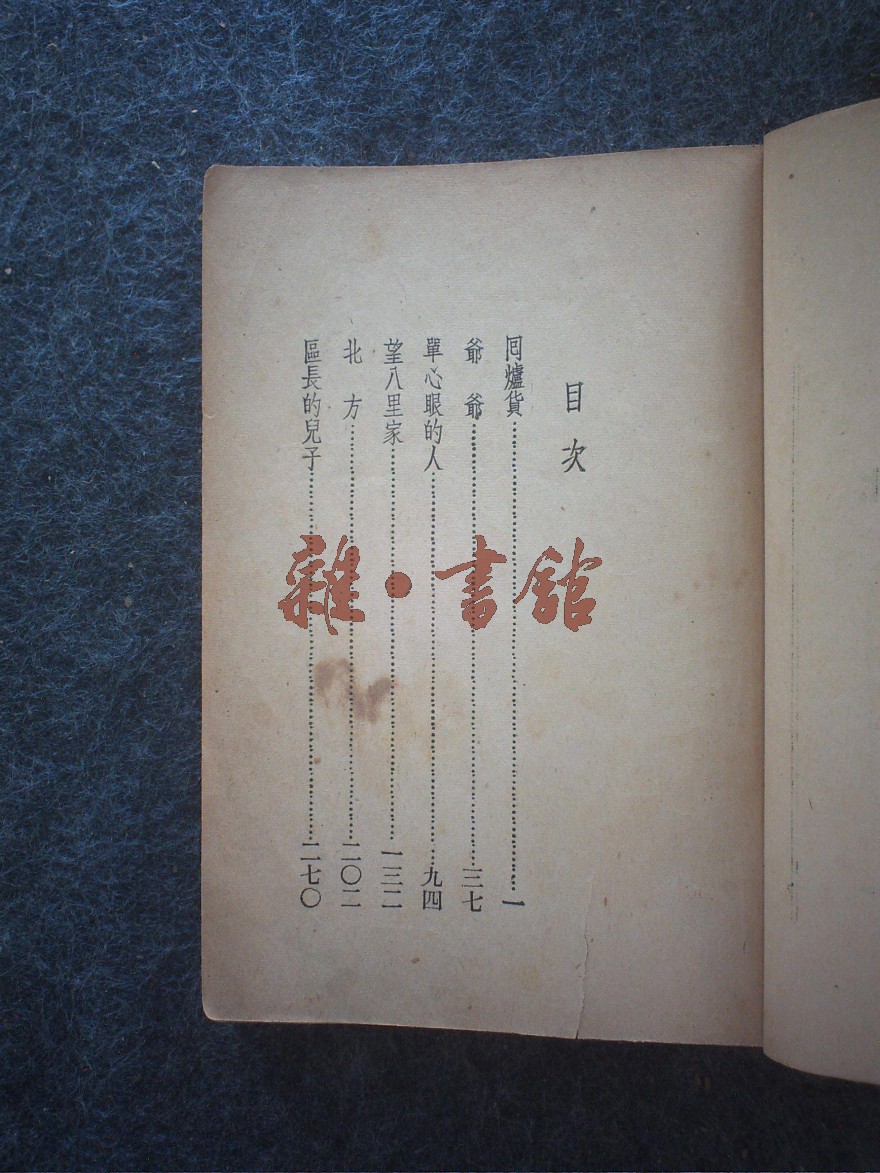 目次
囘爐貨……一
爺爺……三七
單心眼的人……九四
望八里家……一三二
北方……二〇二
區長的兒子……二七〇
雜·書館